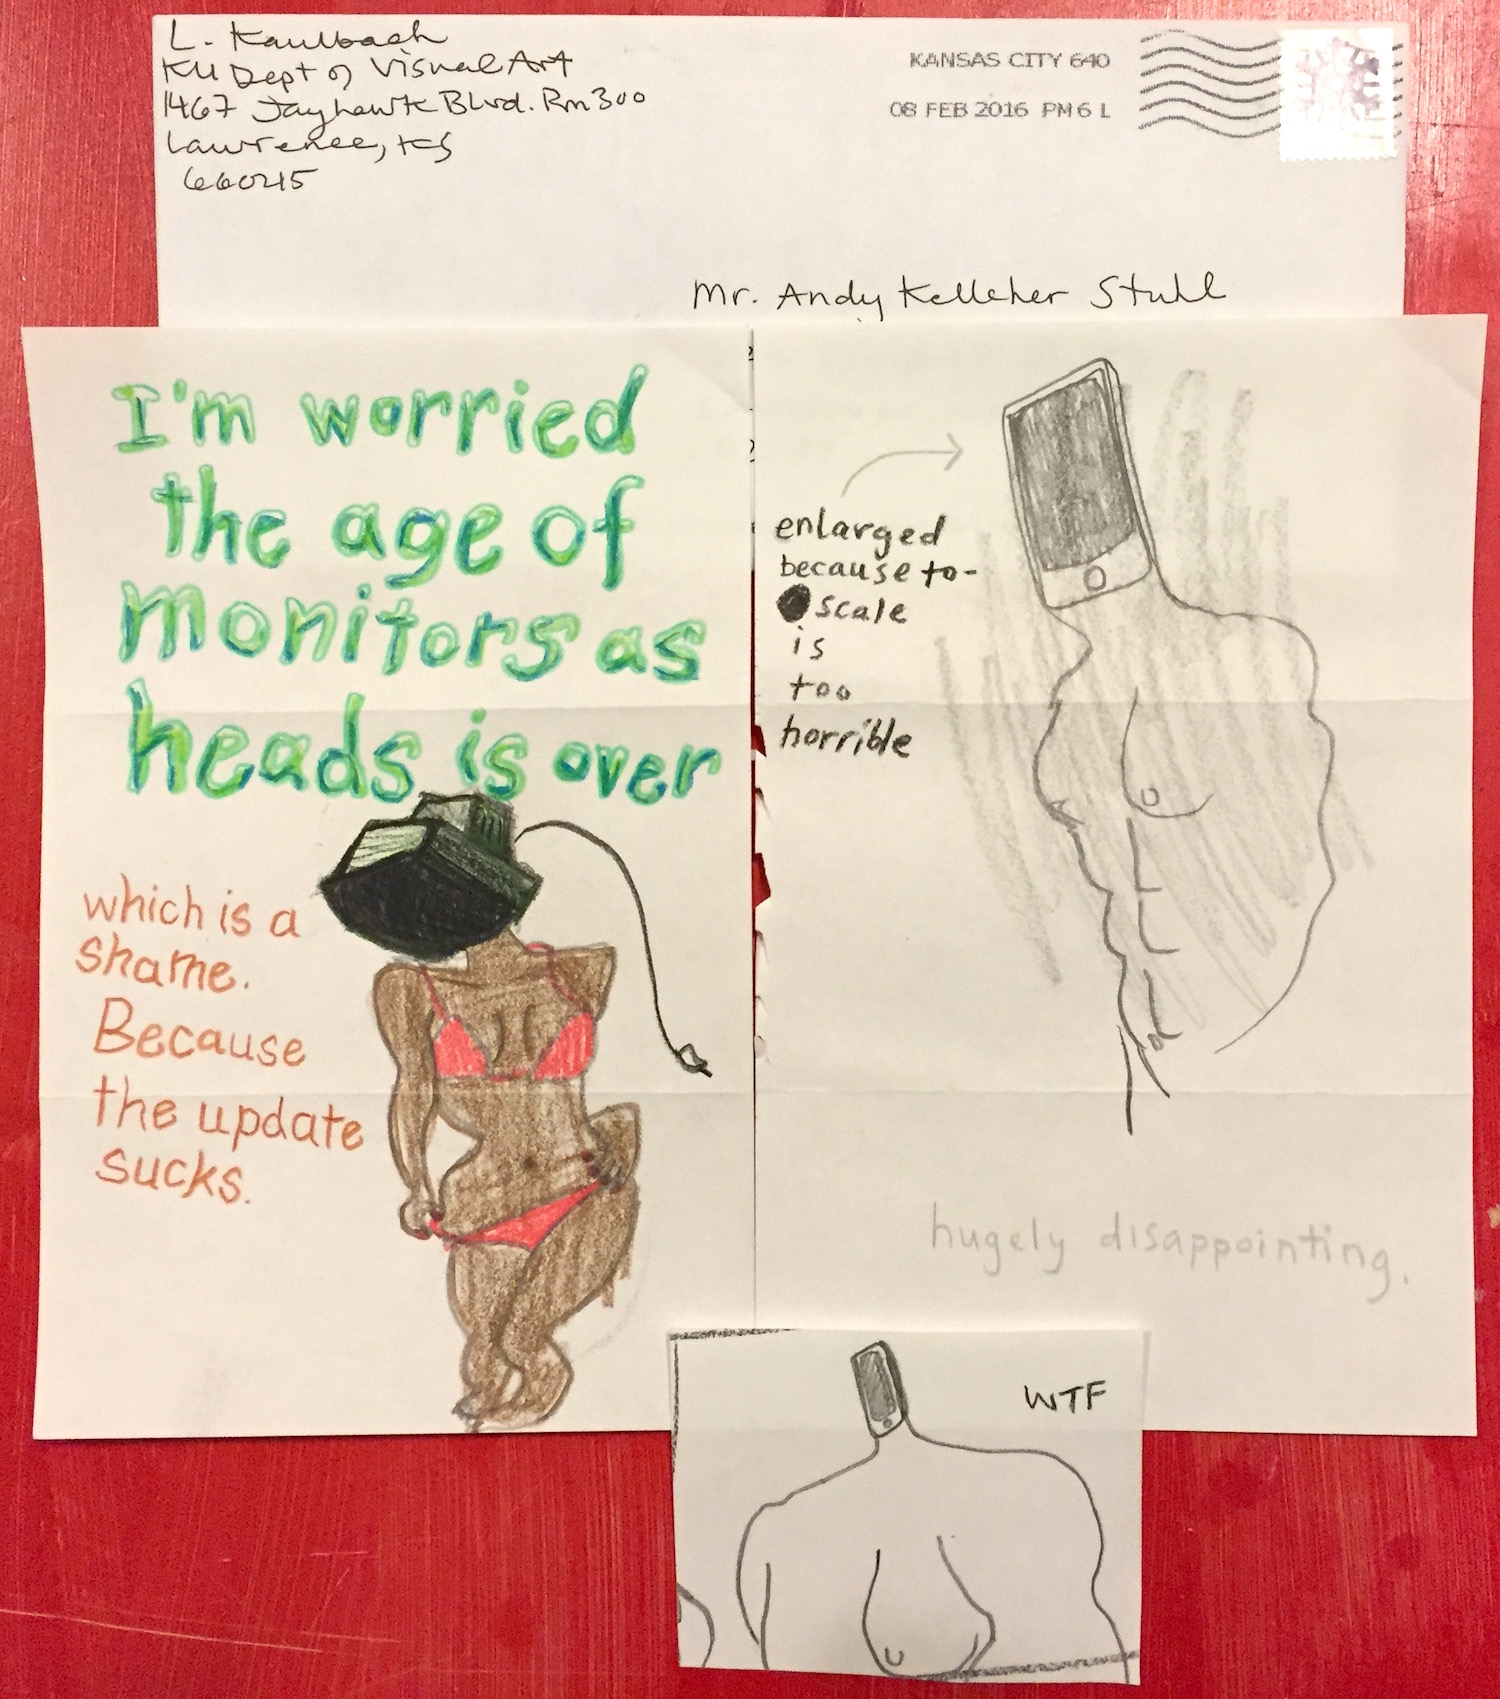 L. Kaulbach
KU Dept of Visual Art
1467 Jayhawk Blvd. Rm 300
Lawrence, KS
66045
KANSAS CITY 640
08 FEB 2016 PM 6 L
Mr. Andy Kelleher Stuhl
I'm worried
the age of
monitors as
heads is over
which is a
shame.
Because
the update
sucks.
enlarged
because to-
scale
is
too
horrible
hugely disappointing.
WTF